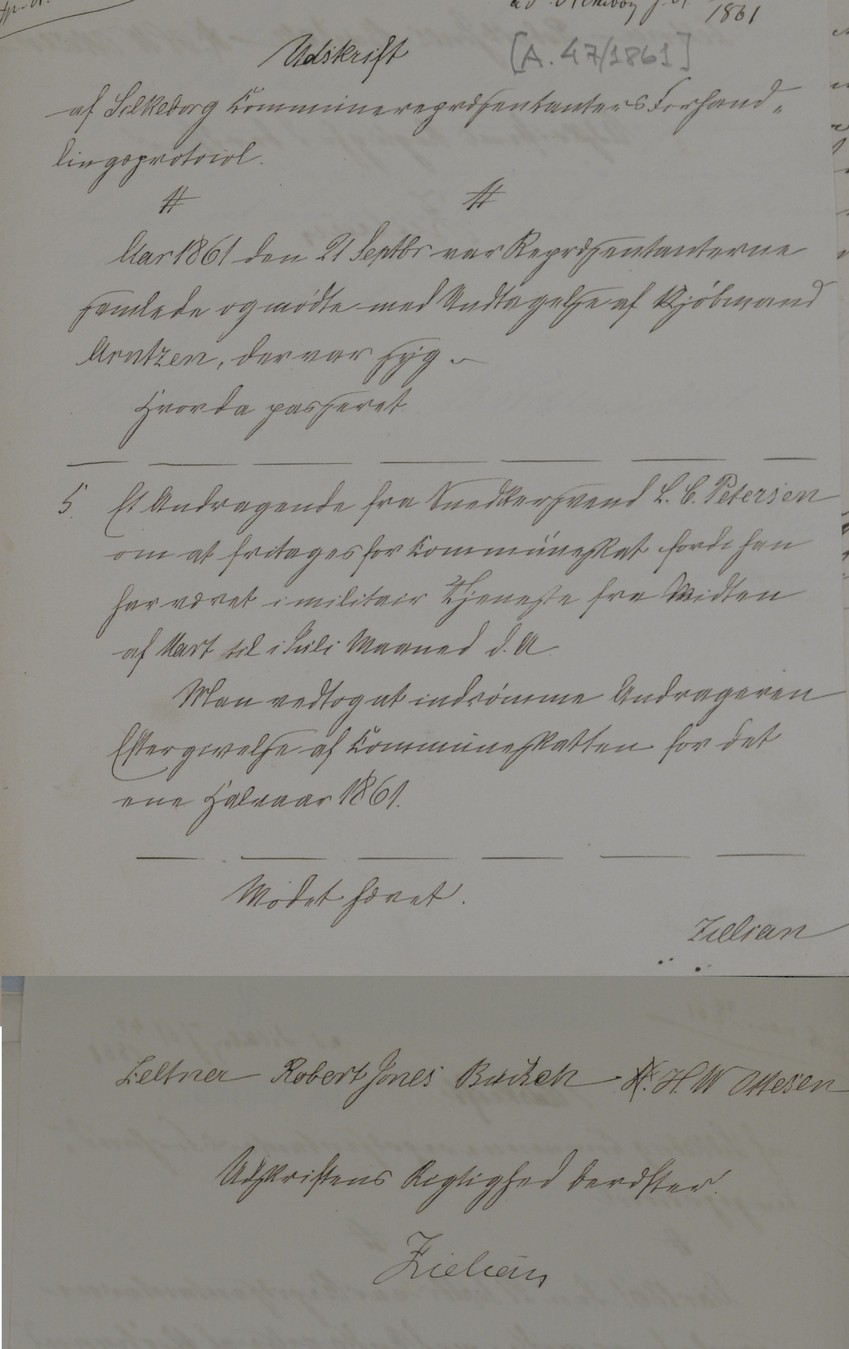 1861
Udskrift [A. 47/1861]
af Silkeborg Commünerepræsentanters Forhand-
lingsprotocol.
# #
Aar 1861 den 21 Septbr var Repræsentanterne
samlede og mødte med Undtagelse af Kjøbmand
Arntzen, der var syg.
Hvorda passeret
5. Et Andragende fra Snedkersvend L. C. Petersen
om at fritages for Commüneskat fordi han
har været i militair Tjeneste fra Midten
af Mart til i Juli Maaned d. A
Man vedtog at indrømme Andrageren
Eftergivelse af Commüneskatten for det
ene Halvaar 1861.
Mødet hævet.
Zielian
Zeltner Robert Jones H. W Ottesen
Udskriftens Rigtighed bekræfter
Zielian